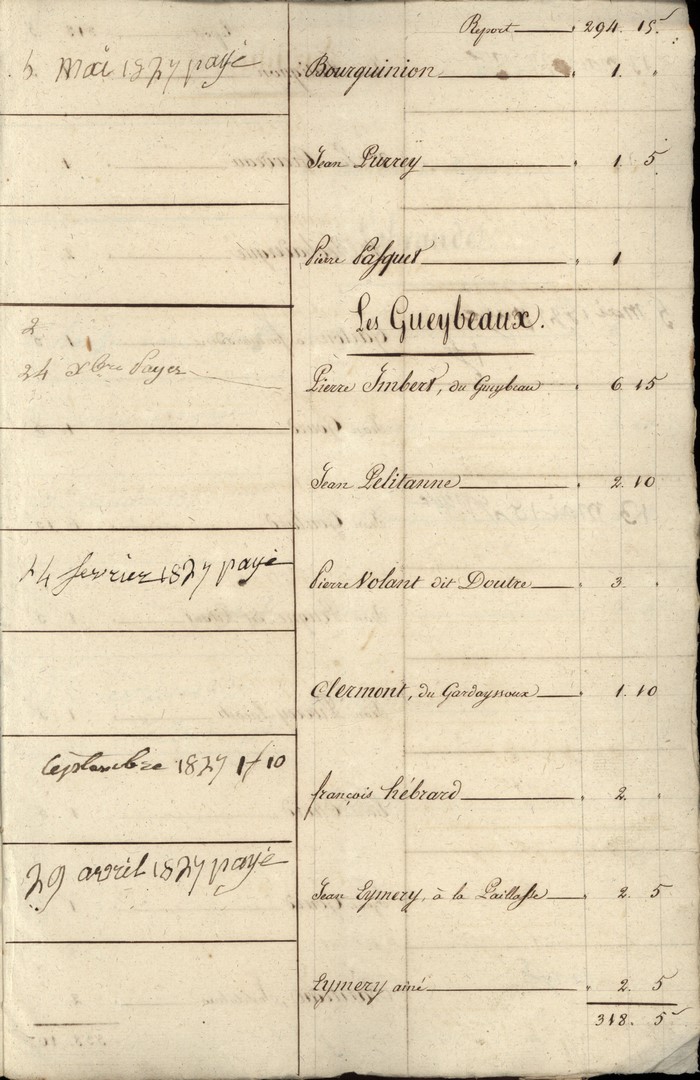 Report 294. 15.
5 Mai 1827 payé Bourguinion 1. "
Jean Purrey 1. 5
Pierre Pasquet 1
Les Gueybeaux.
2
24 Xbre Payer Pierre Imbert, du Gueybeau 6. 15
Jean Pelitanne 2. 10
24 fevrier 1827 payé Pierre Volant dit Doutre 3. "
Clermont, du Gardayssoux 1. 10
Septembre 1827 1f 10 françois hébrard 2. "
29 avril 1827 payé Jean Eymery, à la Paillasse 2. 5
Eymery ainé 2. 5
318. 5